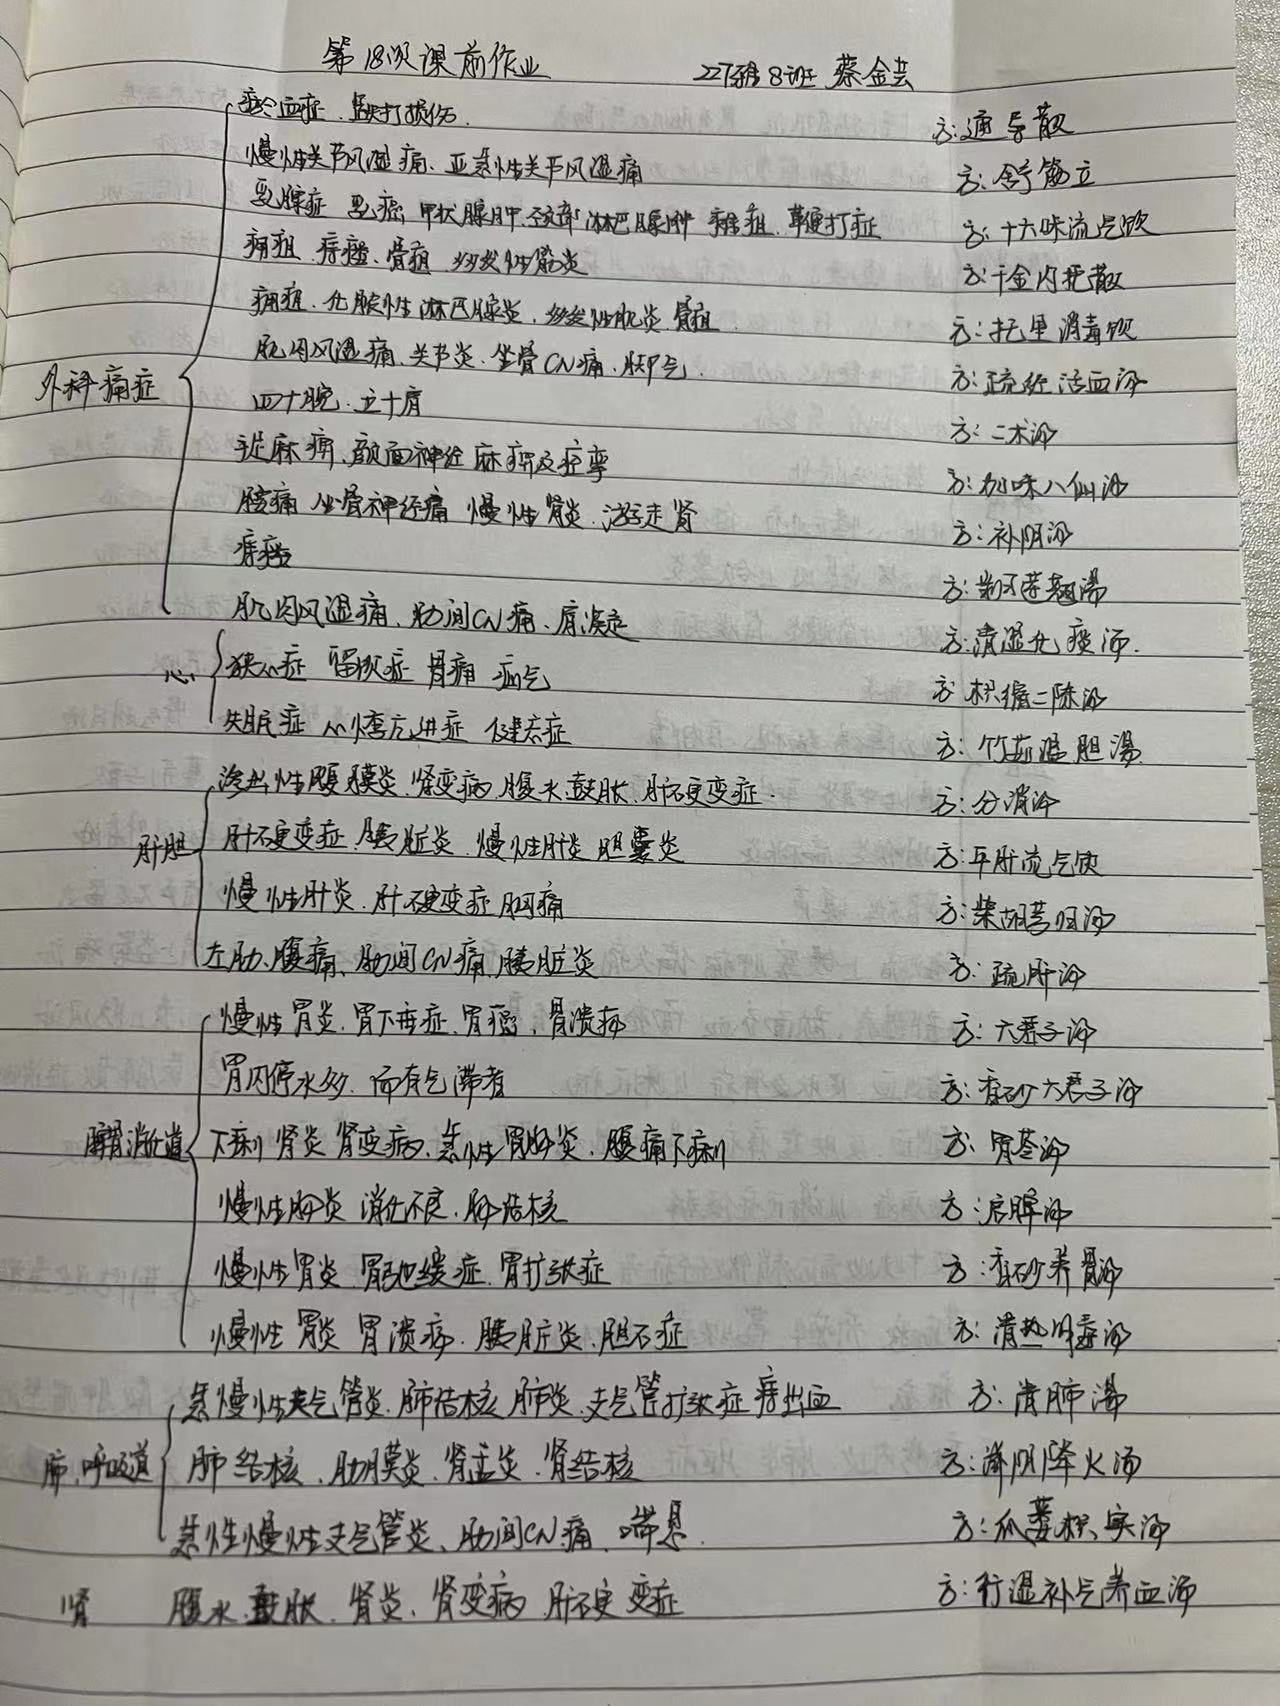 第18次课前作业 227班 8班 蔡金芸
瘀血症、跌打损伤. 方:通导散
慢性关节风湿痛、亚急性关节风湿痛 方:舒筋立
乳腺症 乳癌 甲状腺肿、颈部淋巴腺肿 瘰疽、打症 方:十六味流气饮
痈疽、痔疮、骨疽 多发性筋炎 方:千金内托散
痈疽、化脓性淋巴腺炎、多发性肌炎、骨疽 方:托里消毒饮
肌肉风湿痛、关节炎、坐骨CN痛、脚气. 方:疏经活血汤
外科痛症
四十腕、五十肩 方:二术汤
手足麻痹、颜面神经麻痹及痉挛 方:加味八仙汤
腰痛 坐骨神经痛 慢性肾炎、游走肾 方:补阴汤
痔疮 方:荆芥连翘湯
肌肉风湿痛、肋间CN痛、肩凝症 方:清湿化痰汤.
心 狭心症 留饮症 胃痛 疝气 方:枳缩二陈汤
失眠症 心悸亢进症 健忘症 方:竹茹温胆湯
渗出性腹膜炎、肾变病、腹水鼓胀、肝硬变症. 方:分消汤
肝胆 肝硬变症、胰脏炎、慢性肝炎 胆囊炎 方:平肝流气饮
慢性肝炎、肝硬变症 胸痛 方:柴胡芎归汤
左肋、腹痛、肋间CN痛、胰脏炎 方:疏肝汤
慢性胃炎、胃下垂症、胃癌、胃溃疡 方:六君子汤
胃内停水多、而有气滞者 方:香砂六君子汤
脾胃消化道 下痢 肾炎 肾变病、急性胃肠炎、腹痛下痢 方:胃苓汤
慢性肠炎 消化不良、肠结核 方:启脾汤
慢性胃炎 胃弛缓症、胃扩张症 方:香砂养胃汤
慢性胃炎 胃溃疡、胰脏炎、胆石症 方:清热汤
急慢性支气管炎、肺结核 肺炎、支气管扩张症 痔出血 方:清肺湯
肺、呼吸道 肺结核、肋膜炎、肾盂炎、肾结核 方:滋阴降火汤
急性慢性支气管炎、肋间CN痛、喘息. 方:瓜蒌枳实汤
肾 腹水、鼓胀、肾炎、肾变病、肝硬变症 方:行湿补气养血汤